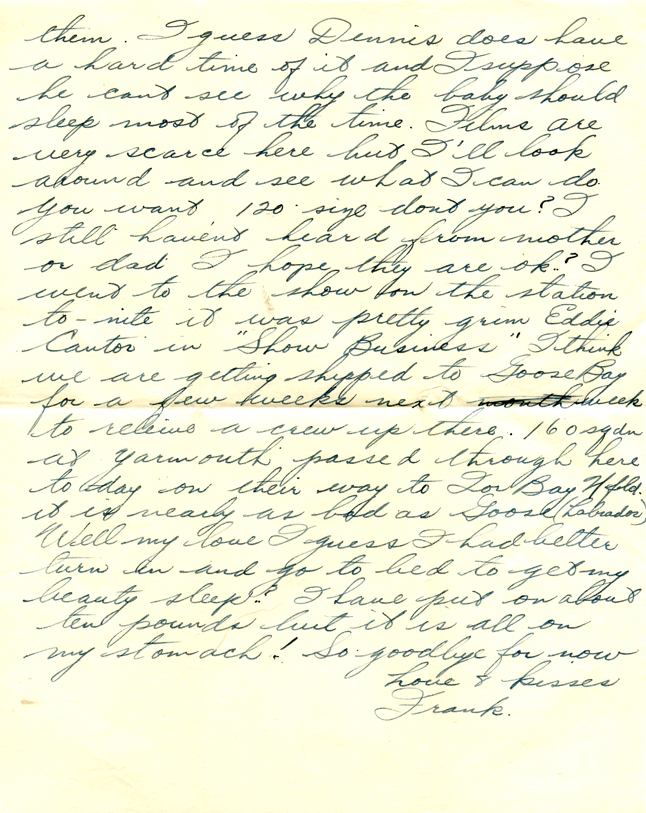 them. I guess Dennis does have
a hard time of it and I suppose
he cant see why the baby should
sleep most of the time. Films are
very scarce here but I'll look
around and see what I can do.
You want 120 size dont you? I
still havent heard from mother
or dad I hope they are ok.? I
went to the show on the station
to-nite it was pretty grim Eddie
Cantor in "Show Business" I think
we are getting shipped to Goose Bay
for a few weeks next month week
to receive a crew up there. 160 sqdn
at Yarmouth passed through here
to day on their way to Tor Bay Nfld.
it is nearly as bad as Goose (Labrador)
Well my love I guess I had better
turn in and go to bed to get my
beauty sleep? I have put on about
ten pounds but it is all on
my stomach! So goodbye for now
Love & kisses
Frank.